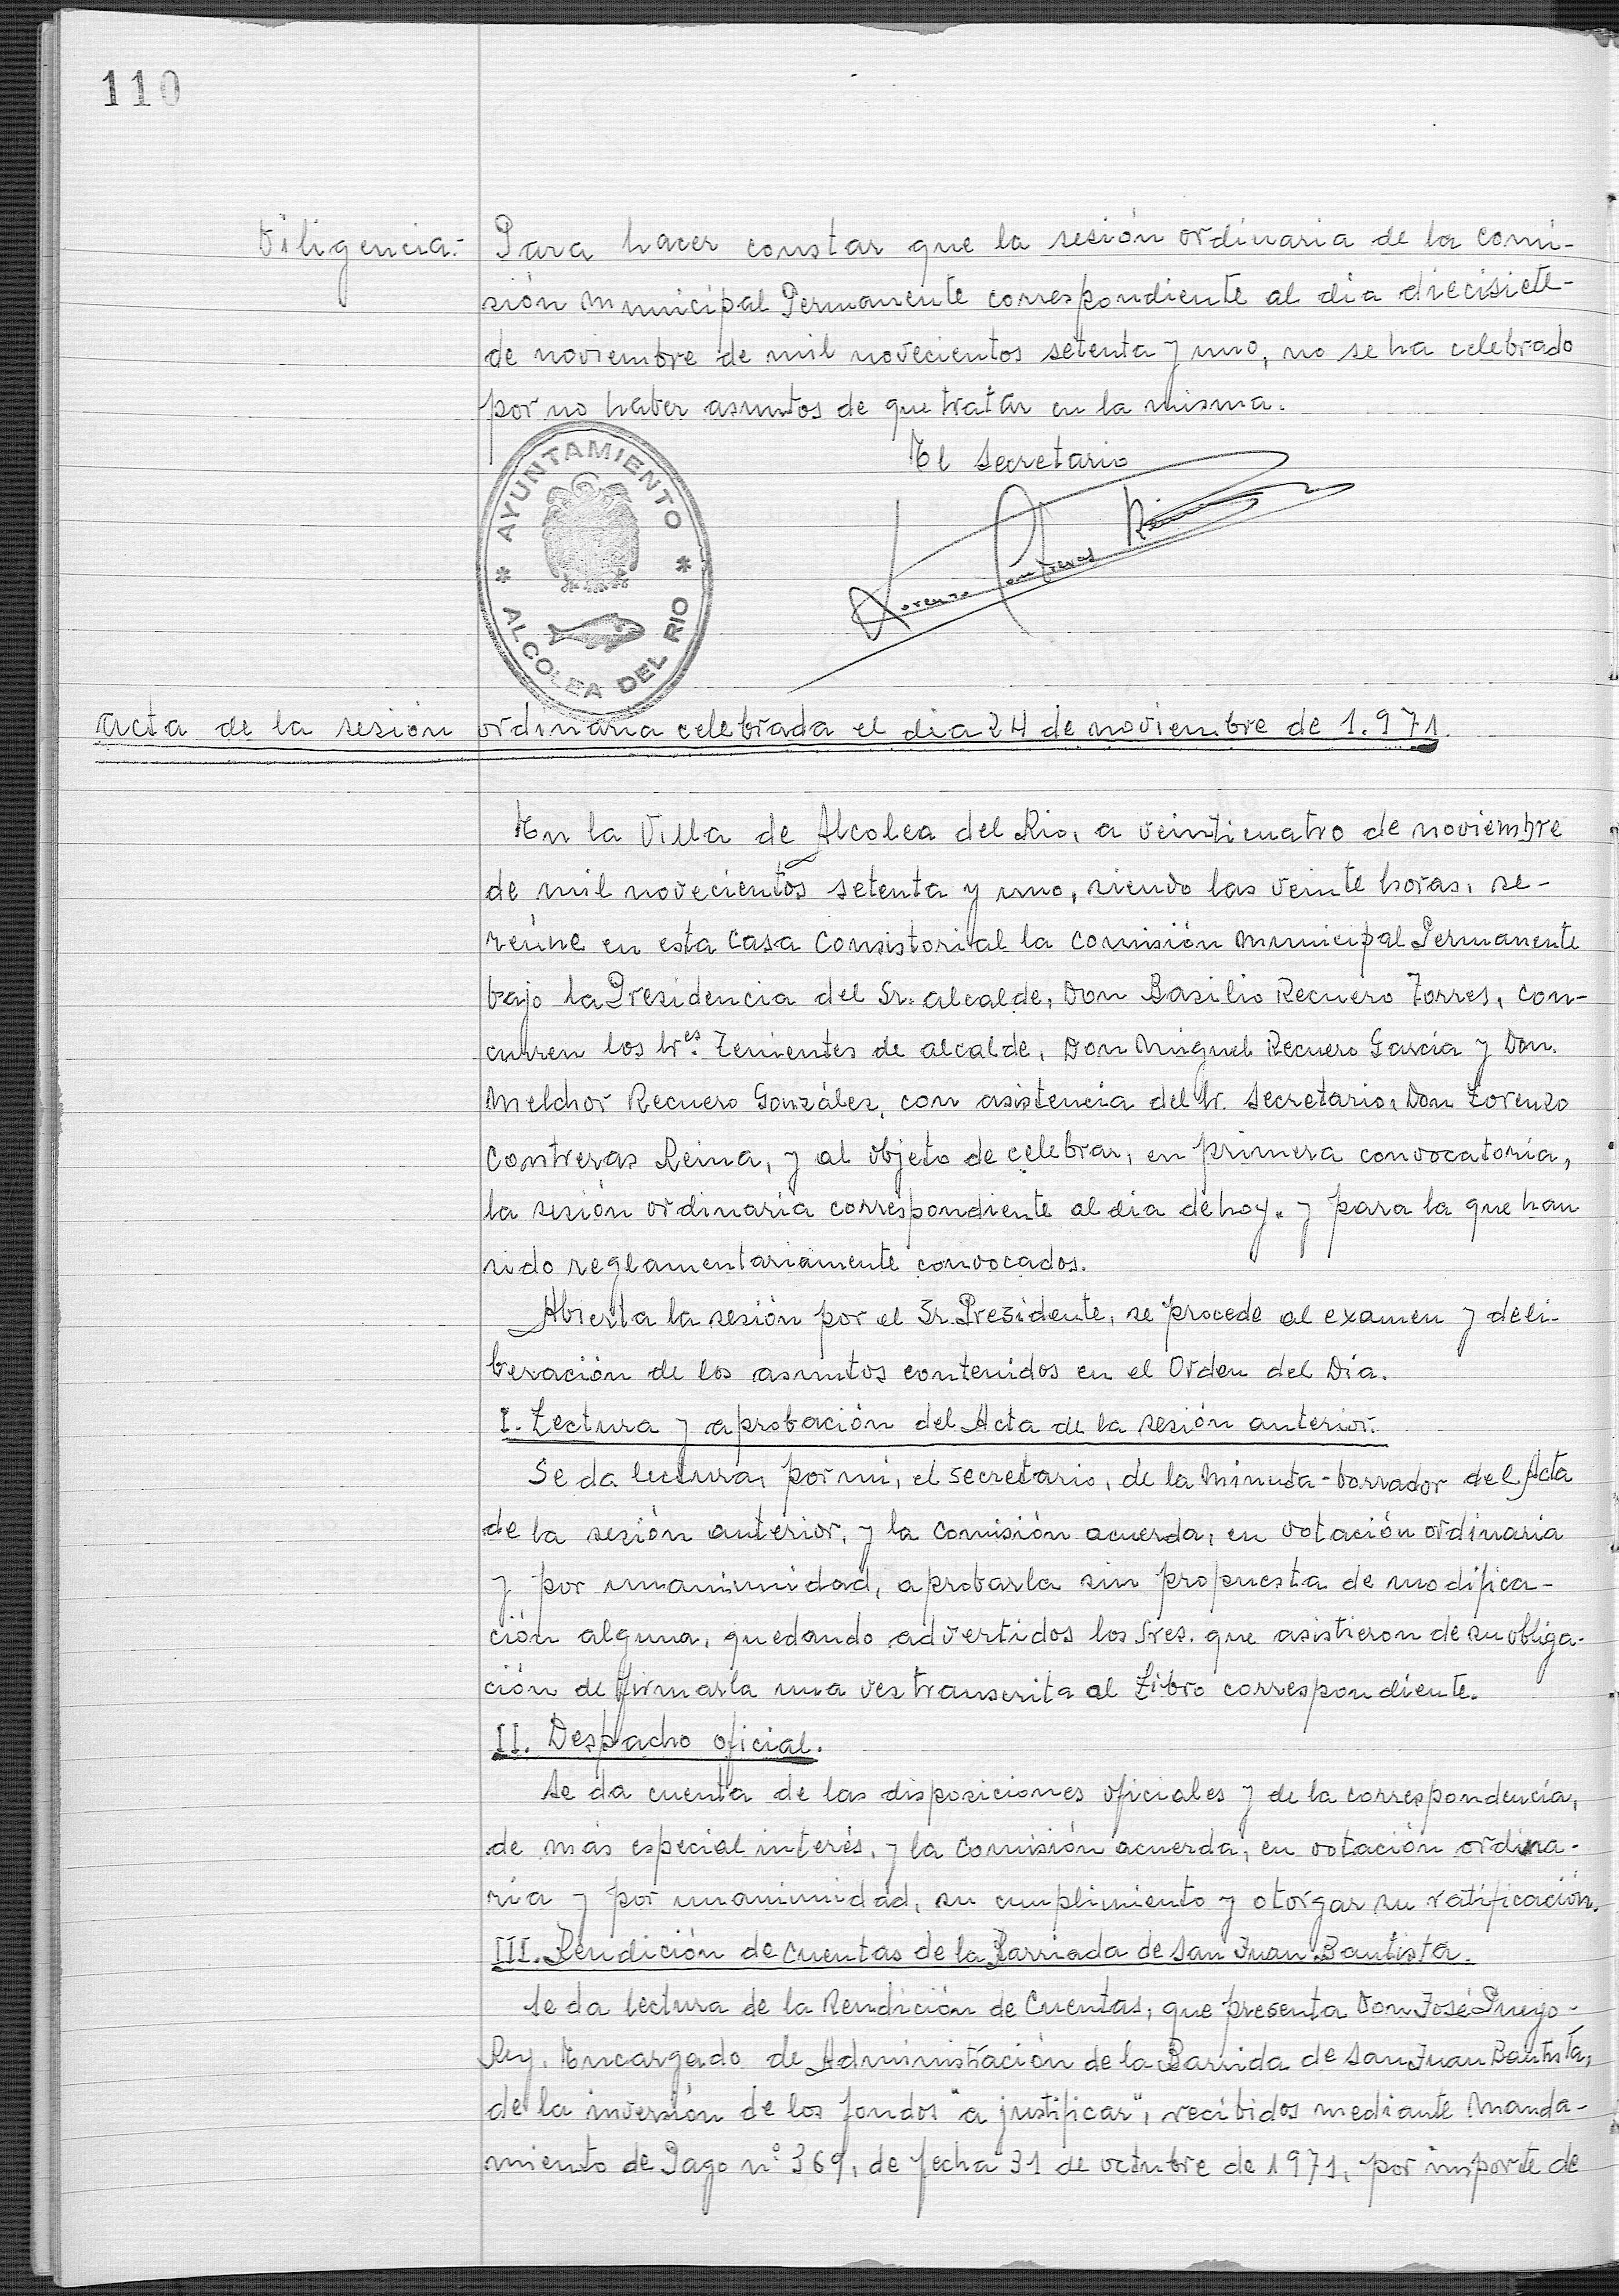 110
Diligencia:- Para hacer constar que la sesión ordinaria de la comi-
sión Municipal Permanente correspondiente al dia diecisiete-
de noviembre de mil novecientos setenta y uno, no se ha celebrado
por no haber asuntos de que tratar en la misma.
El Secretario
Lorenzo Contreras Reina
AYUNTAMIENTO
* ALCOLEA DEL RIO *
Acta de la sesión ordinaria celebrada el dia 24 de noviembre de 1.971.
En la Villa de Alcolea del Rio, a veinticuatro de noviembre
de mil novecientos setenta y uno, siendo las veinte horas, se-
reúne en esta Casa Consistorial la Comisión Municipal Permanente
bajo la Presidencia del Sr. Alcalde, Don Basilio Recuero Torres, con-
curren los Sres. Tenientes de alcalde, Don Miguel Recuero García y Don.
Melchor Recuero González, con asistencia del Sr. Secretario, Don Lorenzo
Contreras Reina, y al objeto de celebrar, en primera convocatoria,
la sesión ordinaria correspondiente al dia de hoy. y para la que han
sido reglamentariamente convocados.
Abierta la sesión por el Sr. Presidente, se procede al examen y deli-
beración de los asuntos contenidos en el Orden del Día.
I. Lectura y aprobación del Acta de la sesión anterior.
Se da lectura, por mi, el secretario, de la Minuta-borrador del Acta
de la sesión anterior, y la Comisión acuerda, en votación ordinaria
y por unanimidad, aprobarla sin propuesta de modifica-
ción alguna, quedando advertidos los Sres. que asistieron de su obliga-
ción de firmarla una ves transcrita al Libro correspondiente.
II. Despacho oficial.
Se da cuenta de las disposiciones oficiales y de la correspondencia,
de más especial interés, y la Comisión acuerda, en votación ordina-
ria y por unanimidad, su cumplimiento y otorgar su ratificación.
III. Rendición de Cuentas de la Barriada de San Juan Bautista.
Se da lectura de la Rendición de Cuentas, que presenta Don José Pueyo-
Rey, Encargado de Administración de la Barrida de San Juan Bautista,
de la inversión de los fondos "a justificar", recibidos mediante Manda-
miento de Pago nº 369, de fecha 31 de octubre de 1971, por importe de